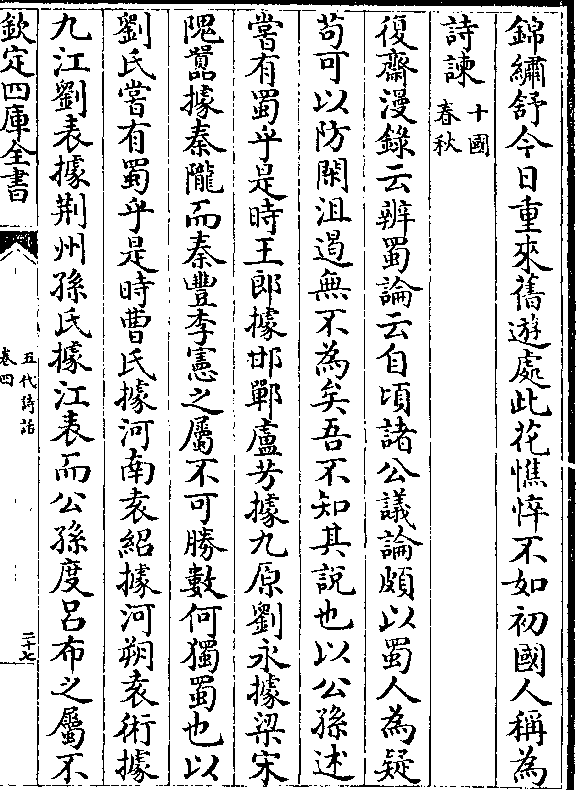 錦繡舒今日重來舊遊處此花憔悴不如初國人稱為
詩諫十國春秋
復齋漫錄云辨蜀論云自頃諸公議論頗以蜀人為疑
苟可以防閑沮遏無不為矣吾不知其說也以公孫述
嘗有蜀乎是時王郎據邯鄲盧芳據九原劉永據梁宋
隗囂據秦隴而秦豐李憲之屬不可勝數何獨蜀也以
劉氏嘗有蜀乎是時曹氏據河南袁紹據河朔袁術據
九江劉表據荆州孫氏據江表而公孫度呂布之屬不
欽定四庫全書
五代詩話
卷四
二十七